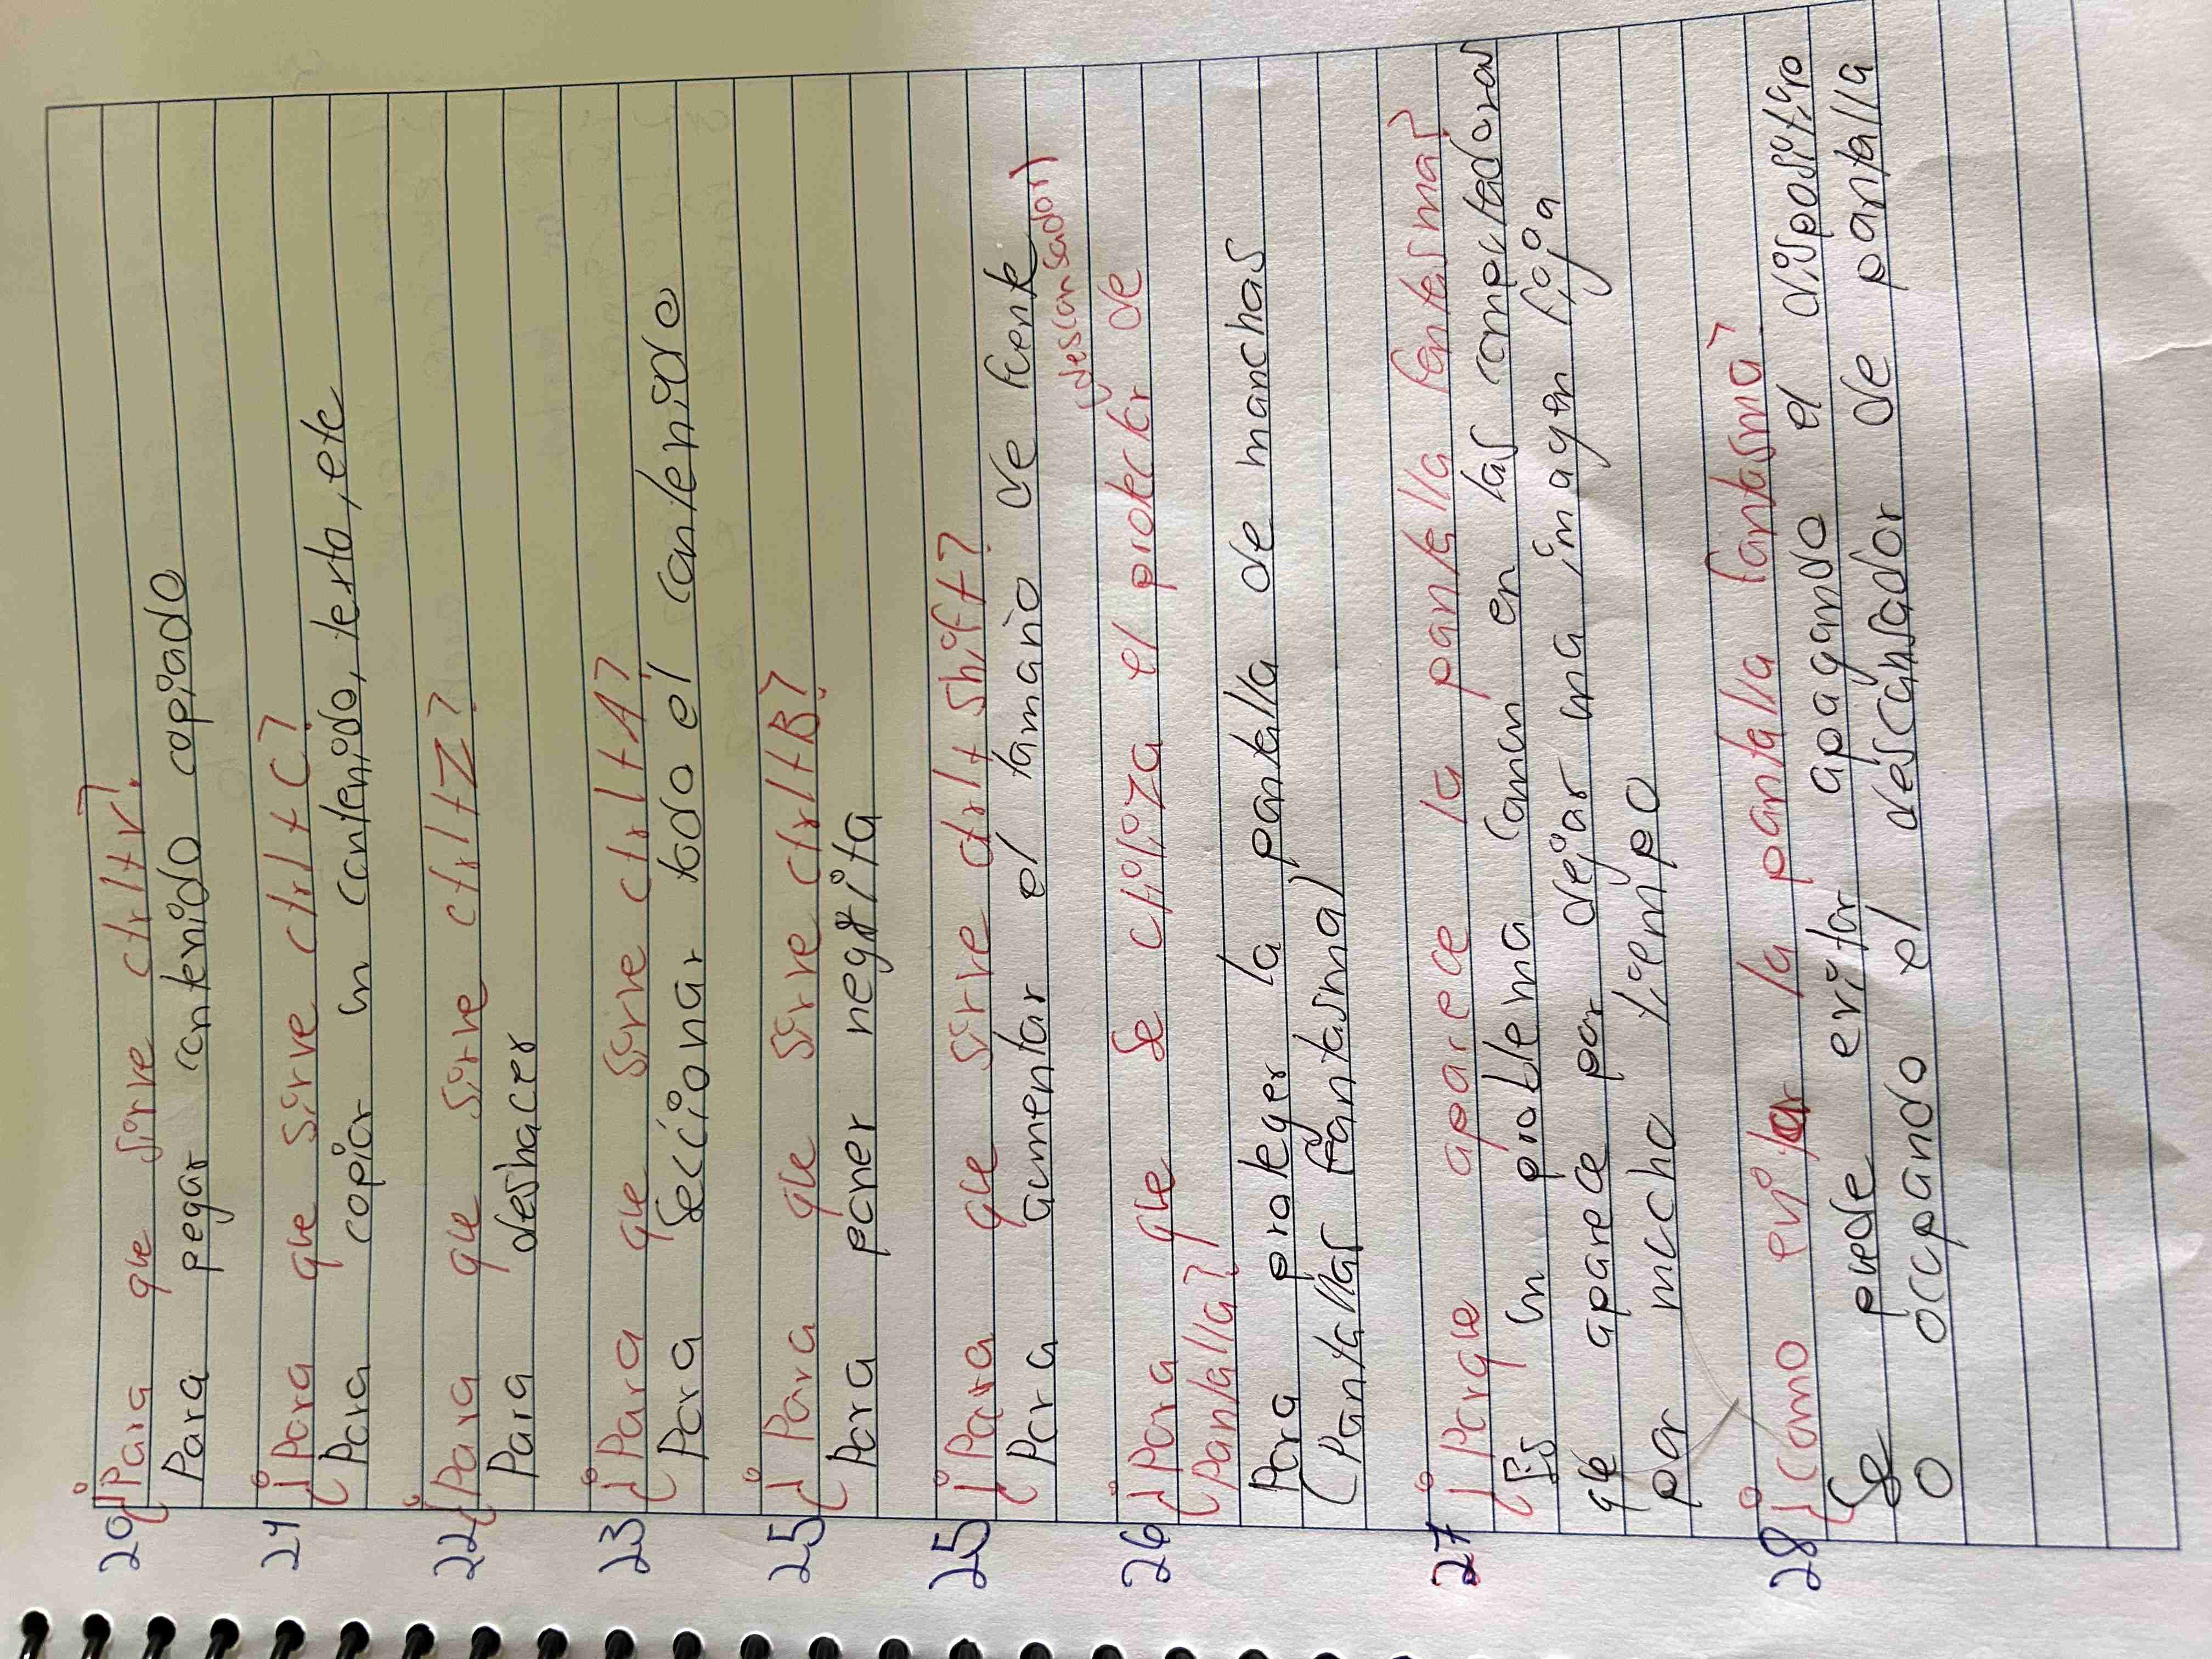 20 ¿Para que sirve ctrl+V?
Para pegar contenido copiado
21 ¿Para que sirve ctrl+C?
Para copiar un contenido, texto, etc
22 ¿Para que sirve ctrl+Z?
Para deshacer
23 ¿Para que sirve ctrl+A?
Para Seccionar todo el contenido
25 ¿Para que sirve ctrl+B?
Para poner negrita
25 ¿Para que sirve ctrl+ shift?
Para aumentar el tamaño de fuente
(descansador)
26 ¿Para que se utiliza el protector de
Pantalla?
Para proteger la pantalla de manchas
(Pantallas Fantasma)
27 ¿Porque aparece la pantalla fantasma?
Es un problema comun en las computadoras
que aparece por dejar una imagen fija
por mucho tiempo
28 ¿como evitar la pantalla fantasma?
Se puede evitar apagando el dispositivo
o ocupando el descansador de pantalla